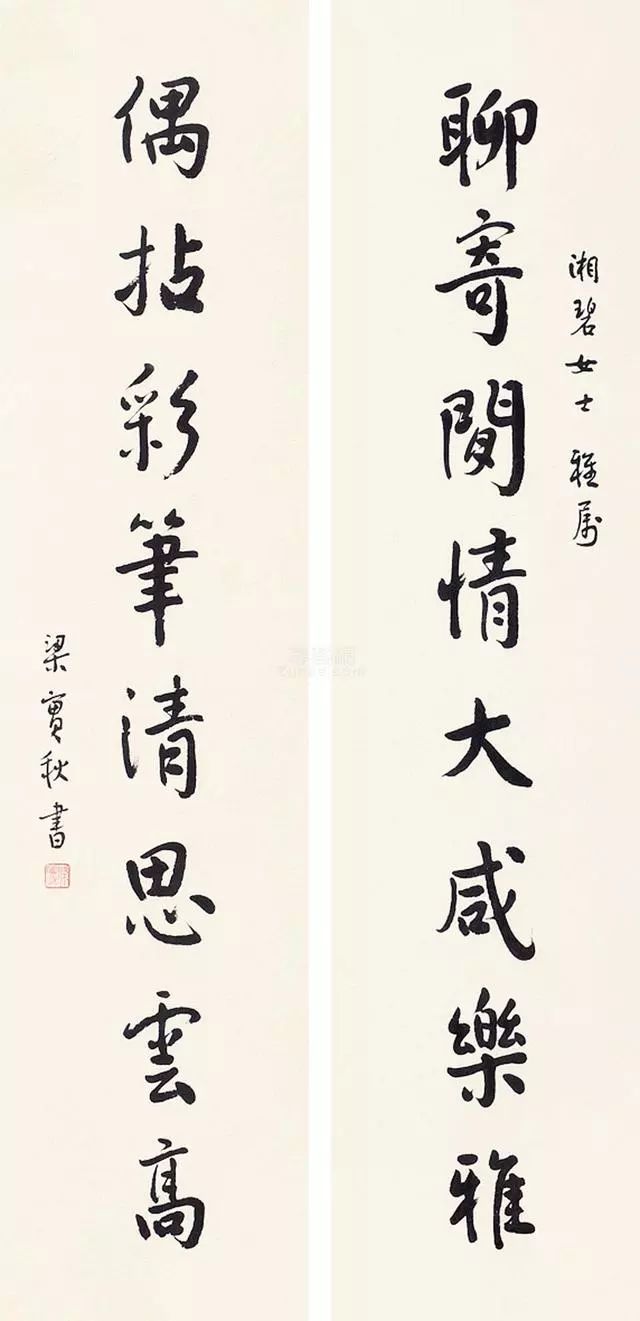 湘碧女士 雅属
聊寄閒情大咸樂雅
偶拈彩筆清思雲高
梁實秋書